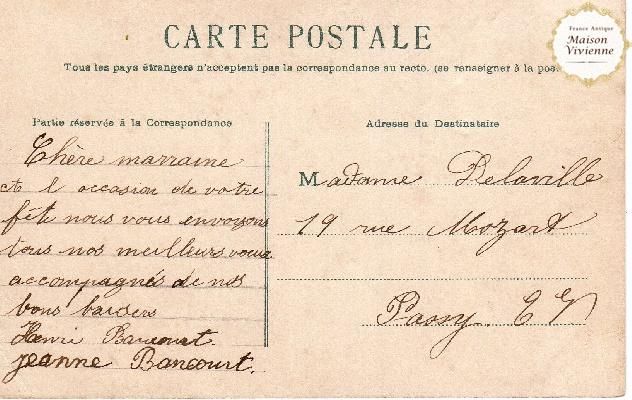 CARTE POSTALE
France Antique
Maison
Vivienne
Tous les pays étrangers n'acceptent pas la correspondance au recto. (se renseigner à la pos
Partie réservée à la Correspondance
Adresse du Destinataire
Chère marraine
à l'occasion de votre
fête nous vous envoyons
tous nos meilleurs voeux
accompagnés de nos
bons baisers
Henri Bancourt
Jeanne Bancourt.
Madame Delaville
19 rue Mozart
Passy.